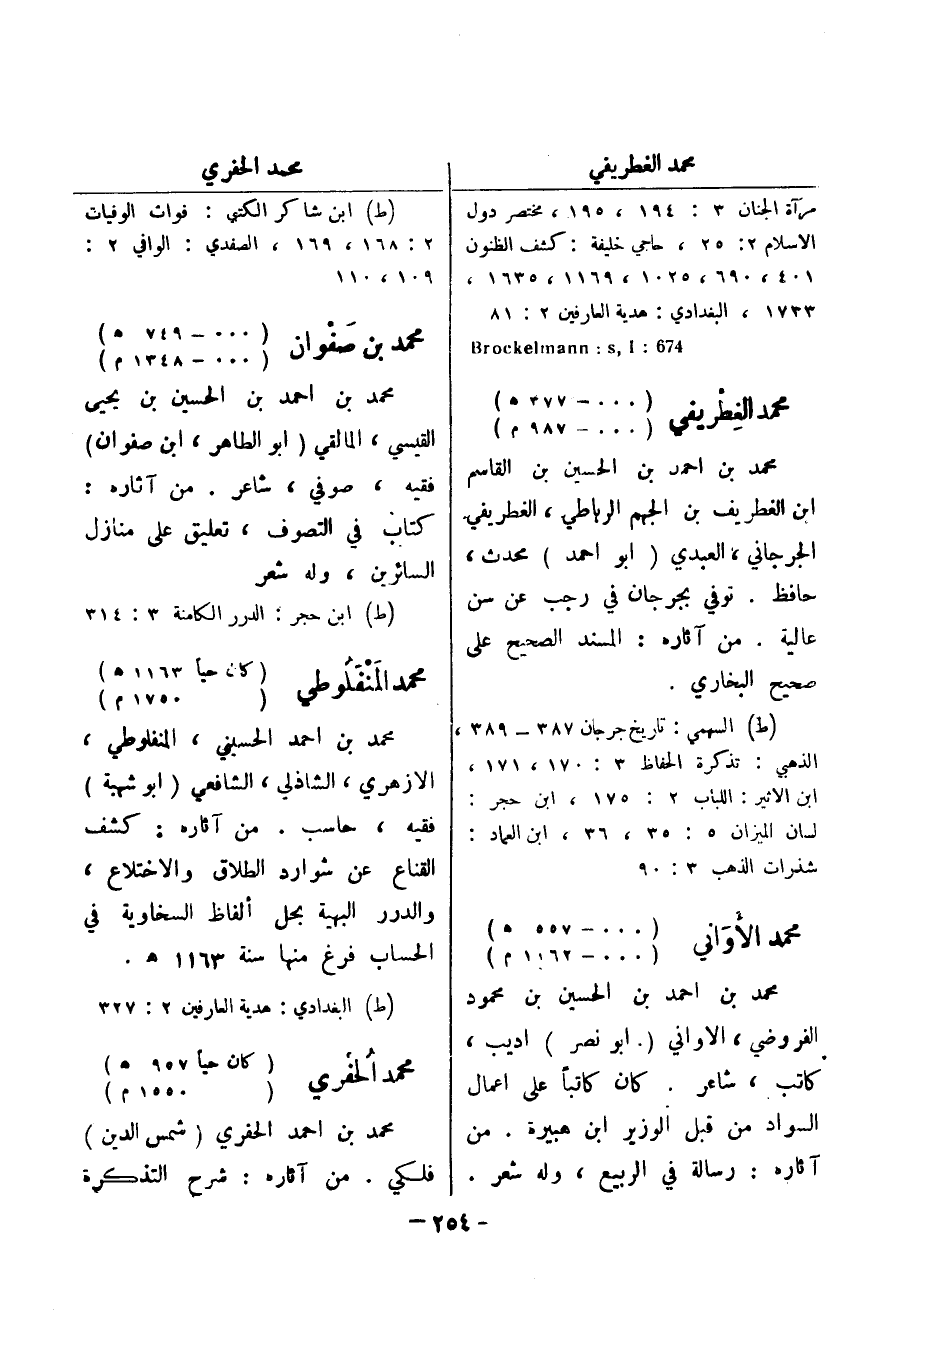 محمد الغطريفي
مرآة الجنان ٣ : ١٩٤ ، ١٩٥ ، مختصر دول
الاسلام ٢: ٢٥ ، حاجي خليفة : كشف الظنون
٤٠١ ، ٦٩٠ ، ١٠٢٥ ، ١١٦٩ ، ١٦٣٥ ،
١٧٣٣ ، البغدادي : هدية العارفين ٢ : ٨١
Brockelmann : s, I : 674
محمد الغِطْريفي ( ٠٠٠ – ٣٧٧ ه )
( ٠٠٠ – ٩٨٧ م )
محمد بن احمد بن الحسين بن القاسم
ابن الغطريف بن الجهم الرباطي ، الغطريفي
الجرجاني ، العبدي ( ابو احمد ) محدث ،
حافظ . توفي بجرجان في رجب عن سن
عالية . من آثاره : المسند الصحيح على
صحيح البخاري .
(ط) السهمي : تاريخ جرجان ٣٨٧ – ٣٨٩ ،
الذهبي : تذكرة الحفاظ ٣ : ١٧٠ ، ١٧١ ،
ابن الاثير : اللباب ٢ : ١٧٥ ، ابن حجر :
لسان الميزان ٥ : ٣٥ ، ٣٦ ، ابن العماد :
شذرات الذهب ٣ : ٩٠
محمد الأَوَاني ( ٠٠٠ – ٥٥٧ ه )
( ٠٠٠ – ١١٦٢ م )
محمد بن احمد بن الحسين بن محمود
الفروضي ، الاواني ( ابو نصر ) اديب ،
كاتب ، شاعر . كان كاتباً على اعمال
السواد من قبل الوزير ابن هبيرة . من
آثاره : رسالة في الربيع ، وله شعر .
محمد الخفري
(ط) ابن شاكر الكتبي : فوات الوفيات
٢ : ١٦٨ ، ١٦٩ ، الصفدي : الوافي ٢ :
١٠٩ ، ١١٠
محمد بن صَفْوان ( ٠٠٠ – ٧٤٩ ه )
( ٠٠٠ – ١٣٤٨ م )
محمد بن احمد بن الحسين بن يحيى
القيسي ، المالقي ( ابو الطاهر ، ابن صفوان)
فقيه ، صوفي ، شاعر . من آثاره :
كتاب في التصوف ، تعليق على منازل
السائرين ، وله شعر
(ط) ابن حجر : الدرر الكامنة ٣ : ٣١٤
محمد المَنْفَلُوطي ( كان حياً ١١٦٣ ه )
( ١٧٥٠ م )
محمد بن احمد الحسيني ، المنفلوطي ،
الازهري ، الشاذلي ، الشافعي ( ابو شهبة )
فقيه ، حاسب . من آثاره : كشف
القناع عن شوارد الطلاق والاختلاع ،
والدرر البهية بحل ألفاظ السخاوية في
الحساب فرغ منها سنة ١١٦٣ ه .
(ط) البغدادي : هدية العارفين ٢ : ٣٢٧
محمد الخُفْري ( كان حياً ٩٥٧ ه )
( ١٥٥٠ م )
محمد بن احمد الخفري ( شمس الدين )
فلكي . من آثاره : شرح التذكرة
– ٢٥٤ –